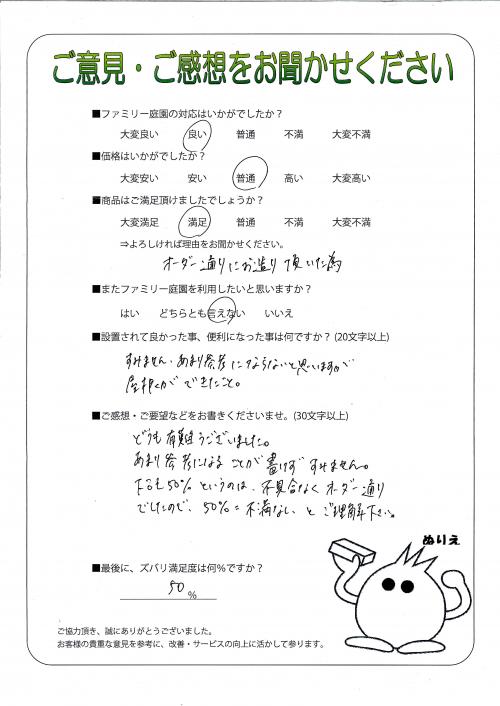 ご意見・ご感想をお聞かせください
■ファミリー庭園の対応はいかがでしたか？
大変良い 良い 普通 不満 大変不満
■価格はいかがでしたか？
大変安い 安い 普通 高い 大変高い
■商品はご満足頂けましたでしょうか？
大変満足 満足 普通 不満 大変不満
⇒よろしければ理由をお聞かせください。
オーダー通りにお造り頂いた為
■またファミリー庭園を利用したいと思いますか？
はい どちらとも言えない いいえ
■設置されて良かった事、便利になった事は何ですか？(20文字以上)
すみません、あまり参考にならないと思いますが
屋根ができたこと。
■ご感想・ご要望などをお書きくださいませ。(30文字以上)
どうも有難うございました。
あまり参考になることが書けず すみません。
50%というのは、不具合なくオーダー通り
でしたので、50%=不満なし とご理解下さい。
ぬりえ
■最後に、ズバリ満足度は何%ですか？
50 %
ご協力頂き、誠にありがとうございました。
お客様の貴重な意見を参考に、改善・サービスの向上に活かして参ります。